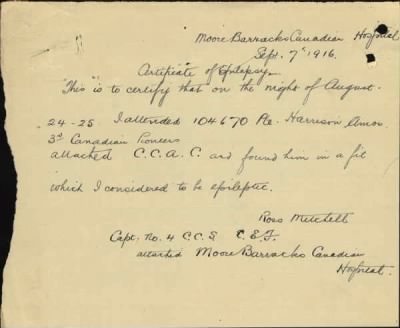 Moore Barracks Canadian Hospital
Sept. 7th 1916.
Certificate of Epilepsy
"This is to certify that on the night of August.
24-25 I attended 104670 Pte. Harrison Amos
3rd Canadian Pioneers
attached C.C.A.C. and found him in a fit
which I considered to be epileptic.
Ross Mitchell
Capt. No. 4 C.C.S. C.E.F.
attached Moore Barracks Canadian
Hospital.